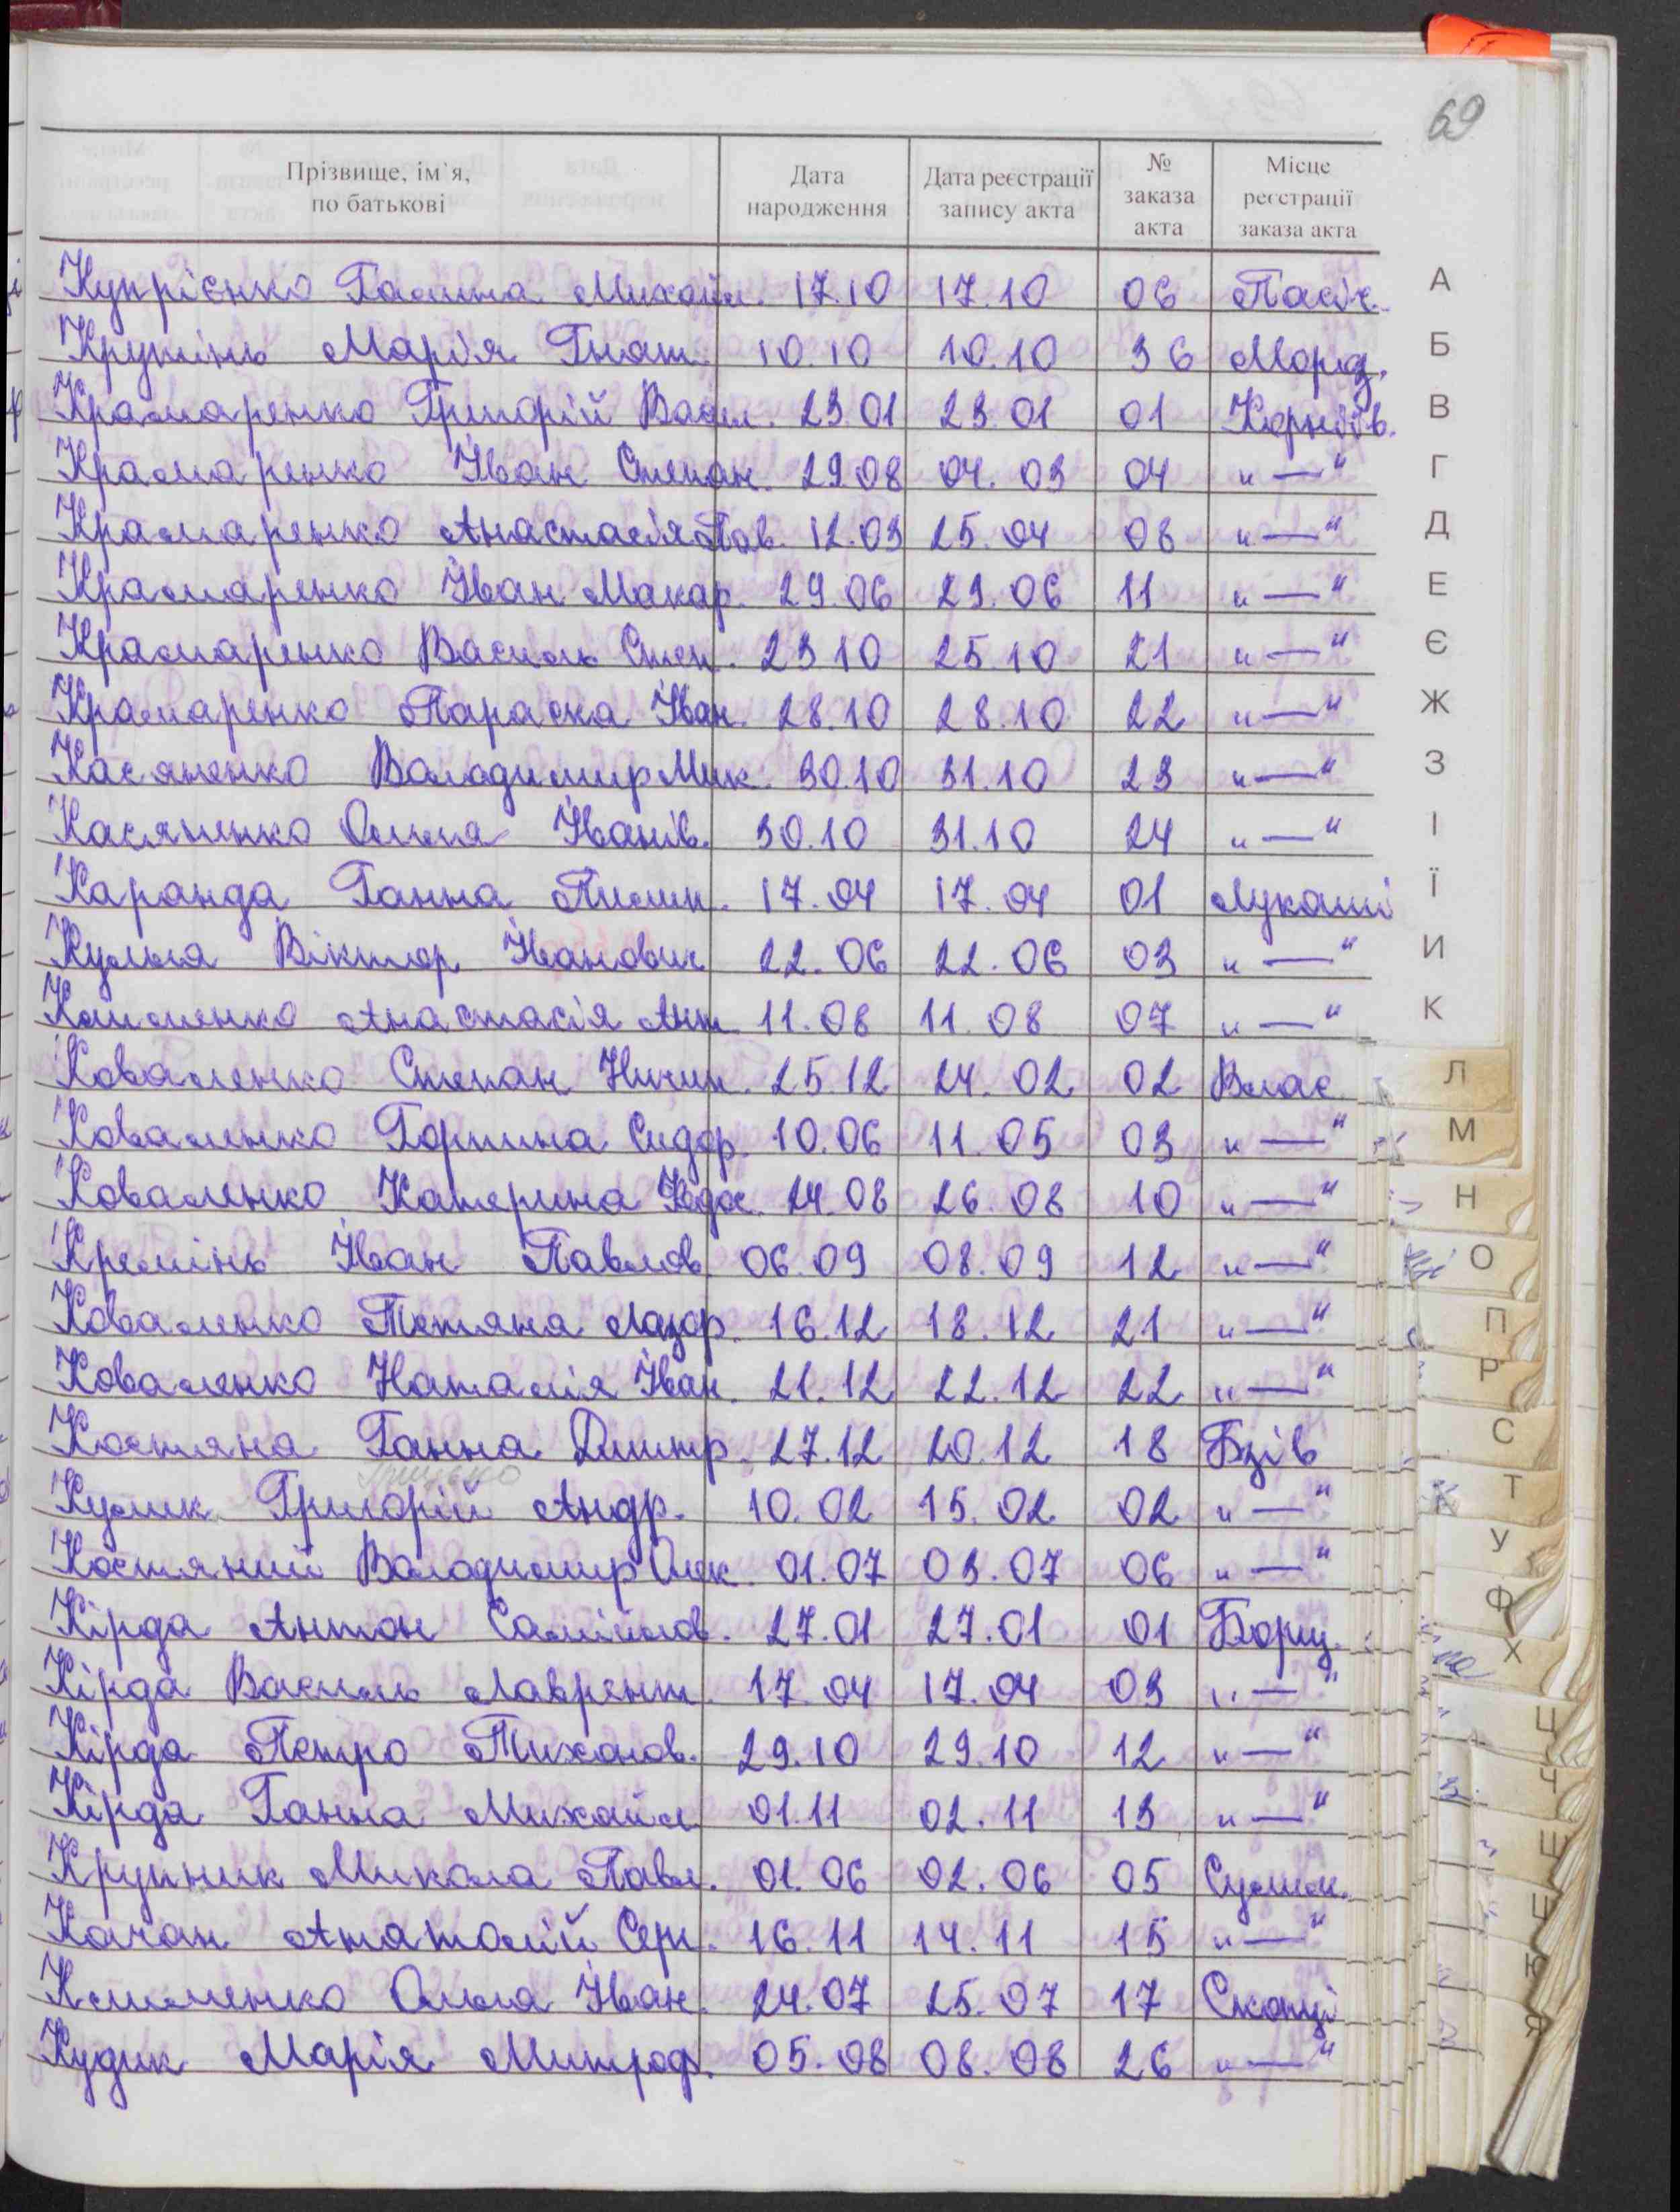 69
Прізвище, ім`я, по батькові | Дата народження | Дата реєстрації запису акта | № заказа акта | Місце реєстрації заказа акта
Купрієнко Галина Михайл. 17.10 17.10 06 Пасіч.
Крумінь Марія Гнат. 10.10 10.10 36 Мороз.
Крамаренко Григорій Васил. 23.01 23.01 01 Корніїв.
Крамаренко Іван Степан. 29.08 04.03 04 „—“
Крамаренко Анастасія Пав. 12.03 25.04 08 „—“
Крамаренко Іван Макар. 29.06 29.06 11 „—“
Крамаренко Василь Степ. 23 10 25 10 21 „—“
Крамаренко Параска Іван. 28.10 28.10 22 „—“
Касяненко Володимир Мик. 30.10 31.10 23 „—“
Касяненко Ольга Іванів. 30.10 31.10 24 „—“
Каранда Ганна Пилип. 17.04 17.04 01 Лукаші
Кульга Віктор Іванович 22.06 22.06 03 „—“
Клименко Анастасія Ант. 11.08 11.08 07 „—“
Коваленко Степан Ничип. 25.12 24.02 02 Влас.
Коваленко Горпина Сидор. 10.06 11.05 03 „—“
Коваленко Катерина Федос. 24.08 26.08 10 „—“
Кремінь Іван Павлов. 06.09 08.09 12 „—“
Коваленко Тетяна Лазар. 16.12 18.12 21 „—“
Коваленко Наталія Іван. 21.12 22.12 22 „—“
Костяна Ганна Дмитр. 27.12 20.12 18 Бзів
Кулик Григорій Андр. 10.02 15.02 02 „—“
Костяний Володимир Олек. 01.07 03.07 06 „—“
Кірда Антон Самійлов. 27.01 27.01 01 Борщ.
Кірда Василь Лаврент. 17.04 17.04 03 „—“
Кірда Петро Тихонов. 29.10 29.10 12 „—“
Кірда Ганна Михайл. 01.11 02.11 13 „—“
Крупник Микола Павл. 01.06 02.06 05 Сулим.
Качан Анатолій Серг. 16.11 14.11 15 „—“
Клименко Ольга Іван. 24.07 25.07 17 Скопці
Кудик Марія Митроф. 05.08 08.08 26 „—“
А
Б
В
Г
Д
Е
Є
Ж
З
І
Ї
И
К
Л
М
Н
О
П
Р
С
Т
У
Ф
Х
Ц
Ч
Ш
Щ
Ю
Я